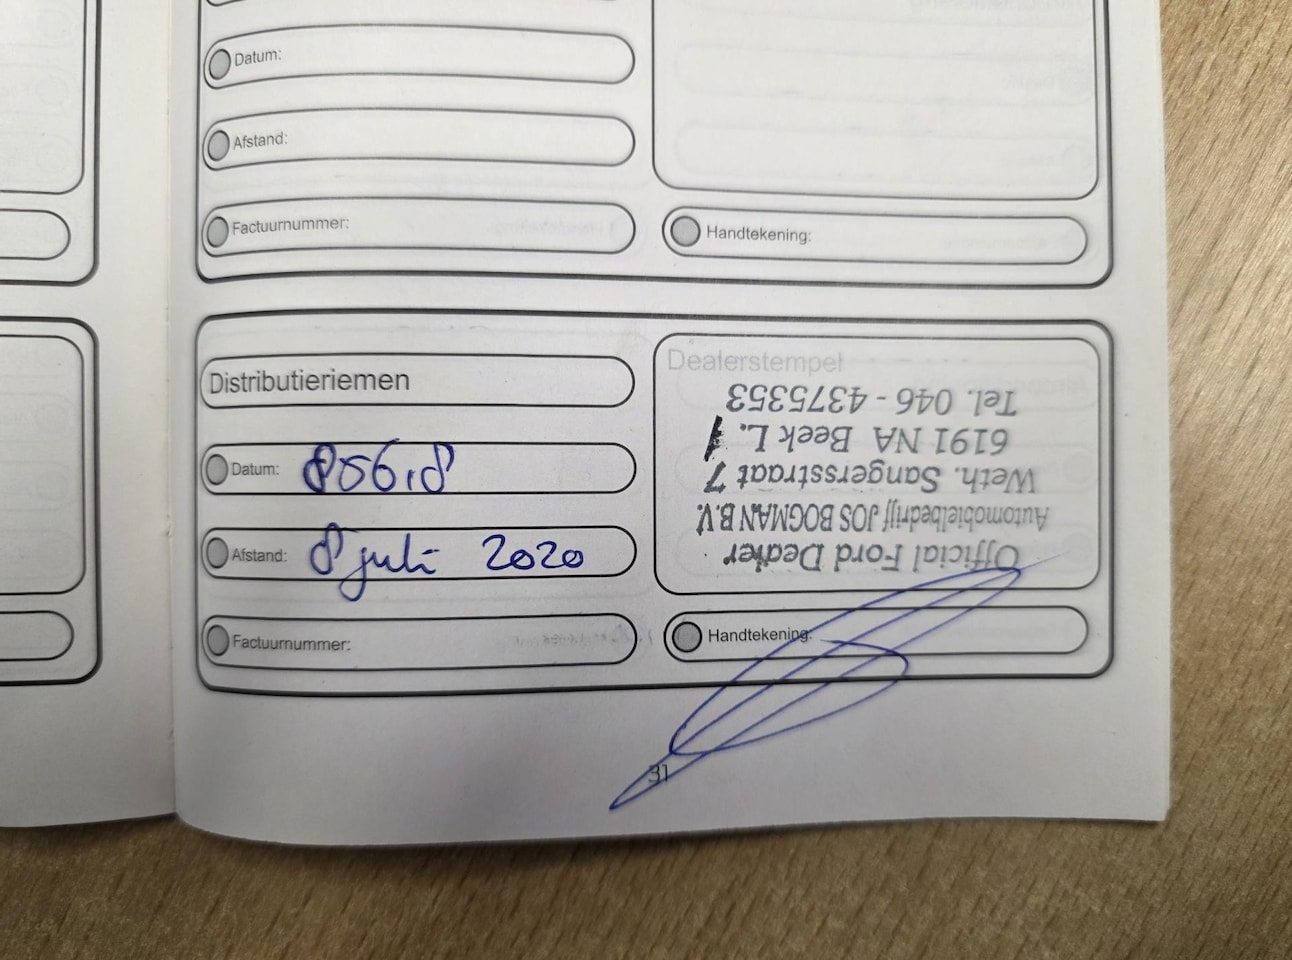 Datum:
Afstand:
Factuurnummer:
Handtekening:
Distributieriemen
Dealerstempel
Official Ford Dealer
Automobielbedrijf JOS BOGMAN B.V.
Weth. Sangersstraat 7
6191 NA Beek L.
Tel. 046 - 4375353
Datum:
Afstand: 8 juli 2020
Factuurnummer:
Handtekening:
31